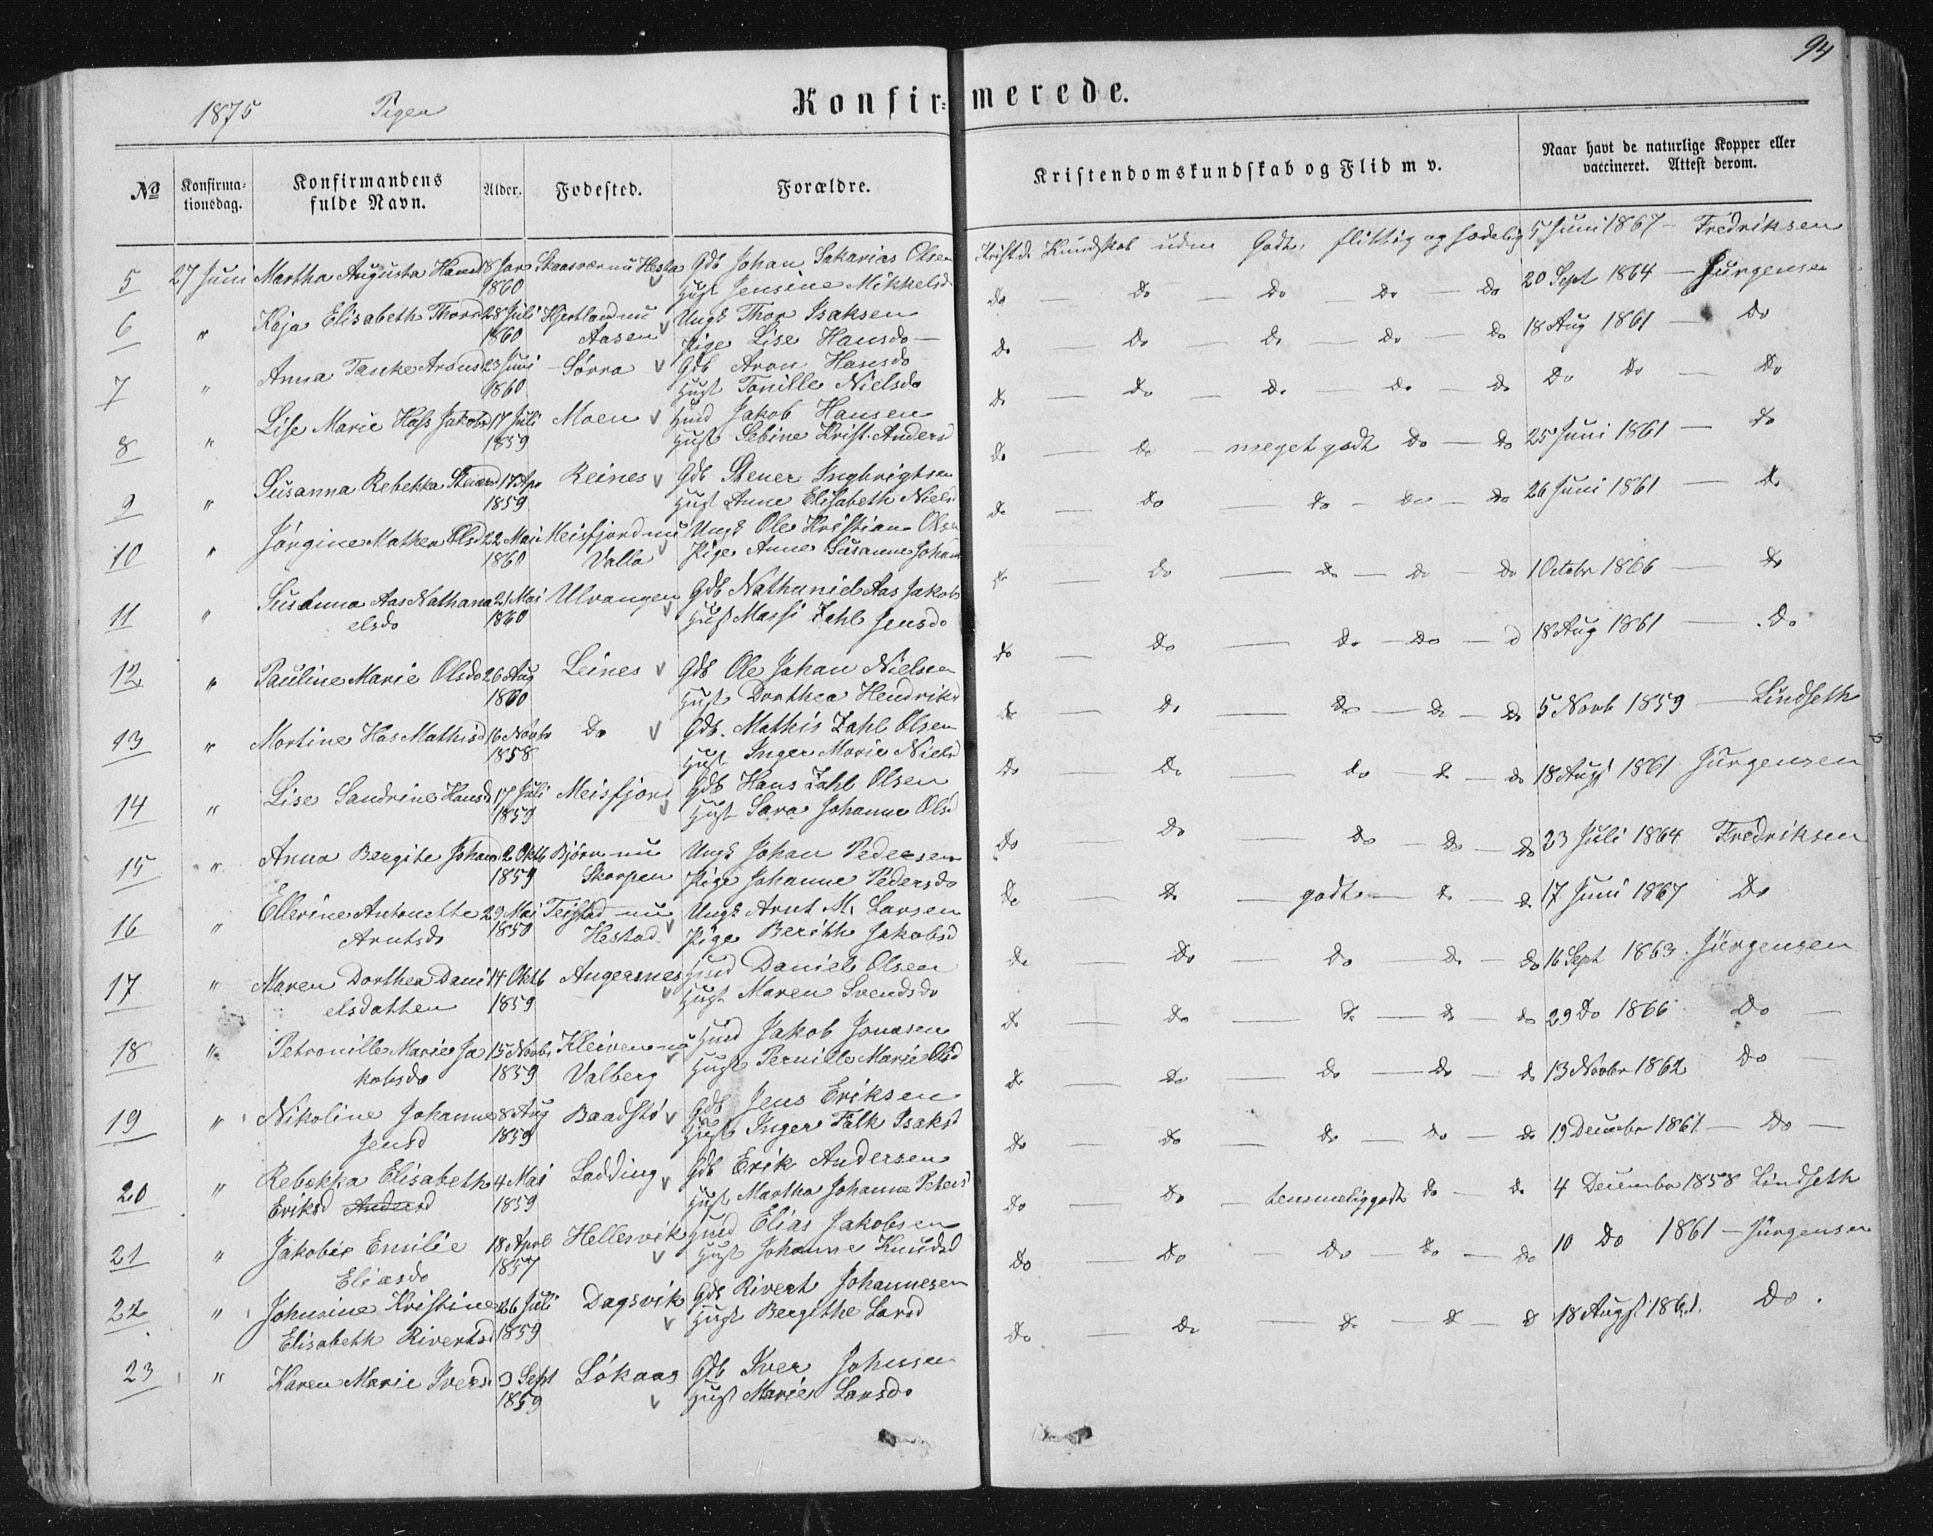 94
1875 Piger Konfirmerede.
No Konfirmationsdag. Konfirmandens fulde Navn. Alder. Fodested. Forældre. Kristendomskundskab og Flid m v. Naar havt de naturlige Kopper eller vaccineret. Attest derom.
5 27 Juni Martha Augusta 18 Jan Gdb Johan Sakarias Olsen Kristd. Kundskab uden Godt, flittig og sædelig 5 Juni 1867 — Fredriksen
1860 Hust Jensine Mikkelsd
6 " Kaja Elisabeth Thorsd 28 Juli Hjertland nu Ungk Thor Isaksen Do — Do — Do — Do — Do 20 Sept 1864 — Jürgensen
1860 Aasen Pige Lise Hansdo
7 " Anna Tanke Aronsd 23 Juni Sørra Gdb Aron Hansdo Do — Do — Do — Do — Do 18 Aug 1861 — Do
1860 Hust Tonille Nielsdo
8 " Lise Marie Jakobs 17 Juli Moen Hmd Jakob Hansen Do — Do — Do — Do — Do Do Do — Do
1859 Hust Sebine Krist. Andersd
9 " Susanna Rebekka Stenersd 17 Apr Reines Gdb Stener Ingbrigtsen Do — Do — meget godt Do — Do 25 Juni 1861 — Do
1859 Hust Anne Elisabeth Nielsd
10 " Jørgine Mathea Olsd 22 Mai Meisfjord nu Ungk Ole Kristian Olsen Do — Do — Do — Do — Do 26 Juni 1861 — Do
1860 Valla Pige Anne Susanne Johans
11 " Susanna Aas Nathana 21 Mai Ulvangen Gdb Nathaniel Aas Jakobs Do — Do — Do — Do — Do 1 Octobr 1866 — Do
elsdo 1860 Hust Massi Zahl Jensdo
12 " Pauline Marie Olsdo 26 Aug Leines Gdb Ole Johan Nielsen Do — Do — Do — Do — D 18 Aug 1861 — Do
1860 Hust Dorthea Hendriksd
13 " Martine Mathisd 16 Novbr Do Gdb. Mathis Zahl Olsen Do — Do — Do — Do — Do 5 Novb 1859 — Lindseth
1858 Hust Inger Marie Nielsd
14 " Lise Sandrine Hansd 17 Juli Meisfjord Gdb Hans Zahl Olsen Do — Do — Do — Do — Do 18 Augs 1861 Jürgensen
1859 Hust Sara Johanne Olsd
15 " Anna Bergite Johans 2 Oktb Bjørn nu Ungk Johan Pedersen Do — Do — Do — Do — Do 23 Juli 1864 Fredriksen
1859 Skorpen Pige Johanne Pedersdo
16 " Ellerine Antonette 29 Mai Teigstad nu Ungk Arnt M. Larsen Do — Do — godt — Do — Do 17 Juni 1867 Do
Arntsdo 1850 Hestad Pige Berith Jakobsd
17 " Maren Dorthea Dani 14 Oktb Angersnes Hmd Daniel Olsen Do — Do — Do — Do — Do 16 Sept 1863. Jürgensen
elsdatter 1859 Hust Maren Svendsdo
18 " Petronille Marie Ja 15 Novbr Kleiven nu Hmd Jakob Jonasen Do — Do — Do — Do — Do 29 Do 1866 Do —
kobsdo 1859 Valberg Hust Pernille Marie Olsd
19 " Nikoline Johanne 8 Aug Baadstø Gdb Jens Eriksen Do — Do — Do — Do — Do 13 Novbr 1862 Do —
Jensd 1859 Hust Inger Falk Isaksd
20 " Rebekka Elisabeth 4 Mai Ladding Gdb Erik Andersen Do — Do — Do — Do — Do 19 Decembr 1861 — Do —
Eriksd Andersd 1859 Hust Martha Johanne Petersd
21 " Jakobie Emilie 18 April Hellesvik Hmd Elias Jakobsen Do — Do — temmelig godt Do — Do 4 December 1858 Lindseth
Eliasdo 1857 Hust Johanne Knudsd
22 " Johnsine Kristine 26 Juli Dagsvik Gdb Rivert Johannesen Do — Do — Do — Do — Do 10 Do 1861 — Jürgensen
Elisabeth Rivertsd 1859 Hust Bergithe Larsd
23 " Karen Marie Iversd 3 Sept Løkaas Gdb Iver Johnsen Do — Do — Do — Do — Do 18 Augst 1861. Do.
1859 Hust Marie Larsdo